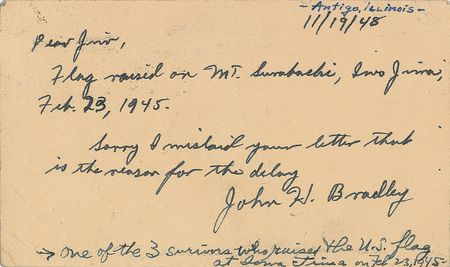 - Antigo, Illinois -
11/19/48
Dear Jim,
Flag raised on Mt. Surabachi, Iwo Jima,
Feb. 23, 1945.
Sorry I mislaid your letter that
is the reason for the delay
John H. Bradley
→ One of the 3 survivors who raised the U.S. flag
at Iowa Jima on Feb 23, 1945-